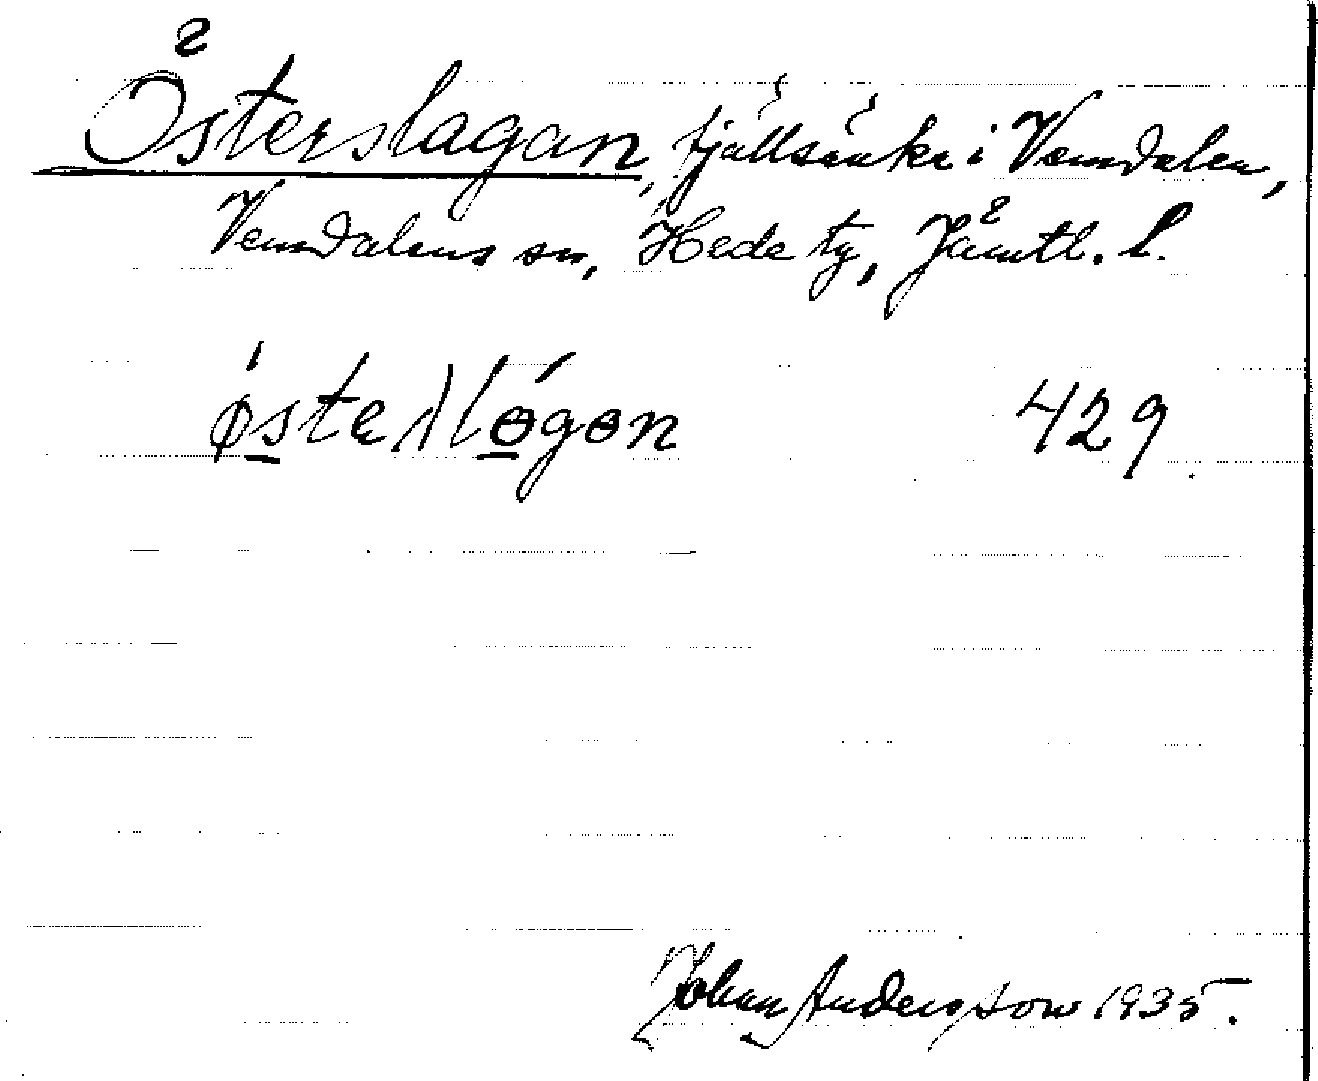 Österslagan, fjällsänke i Vemdalen,
Vemdalens sn, Hede tg, Jämtl. l.
østeʃlɵgɵn 429
Johan Andersson 1935.